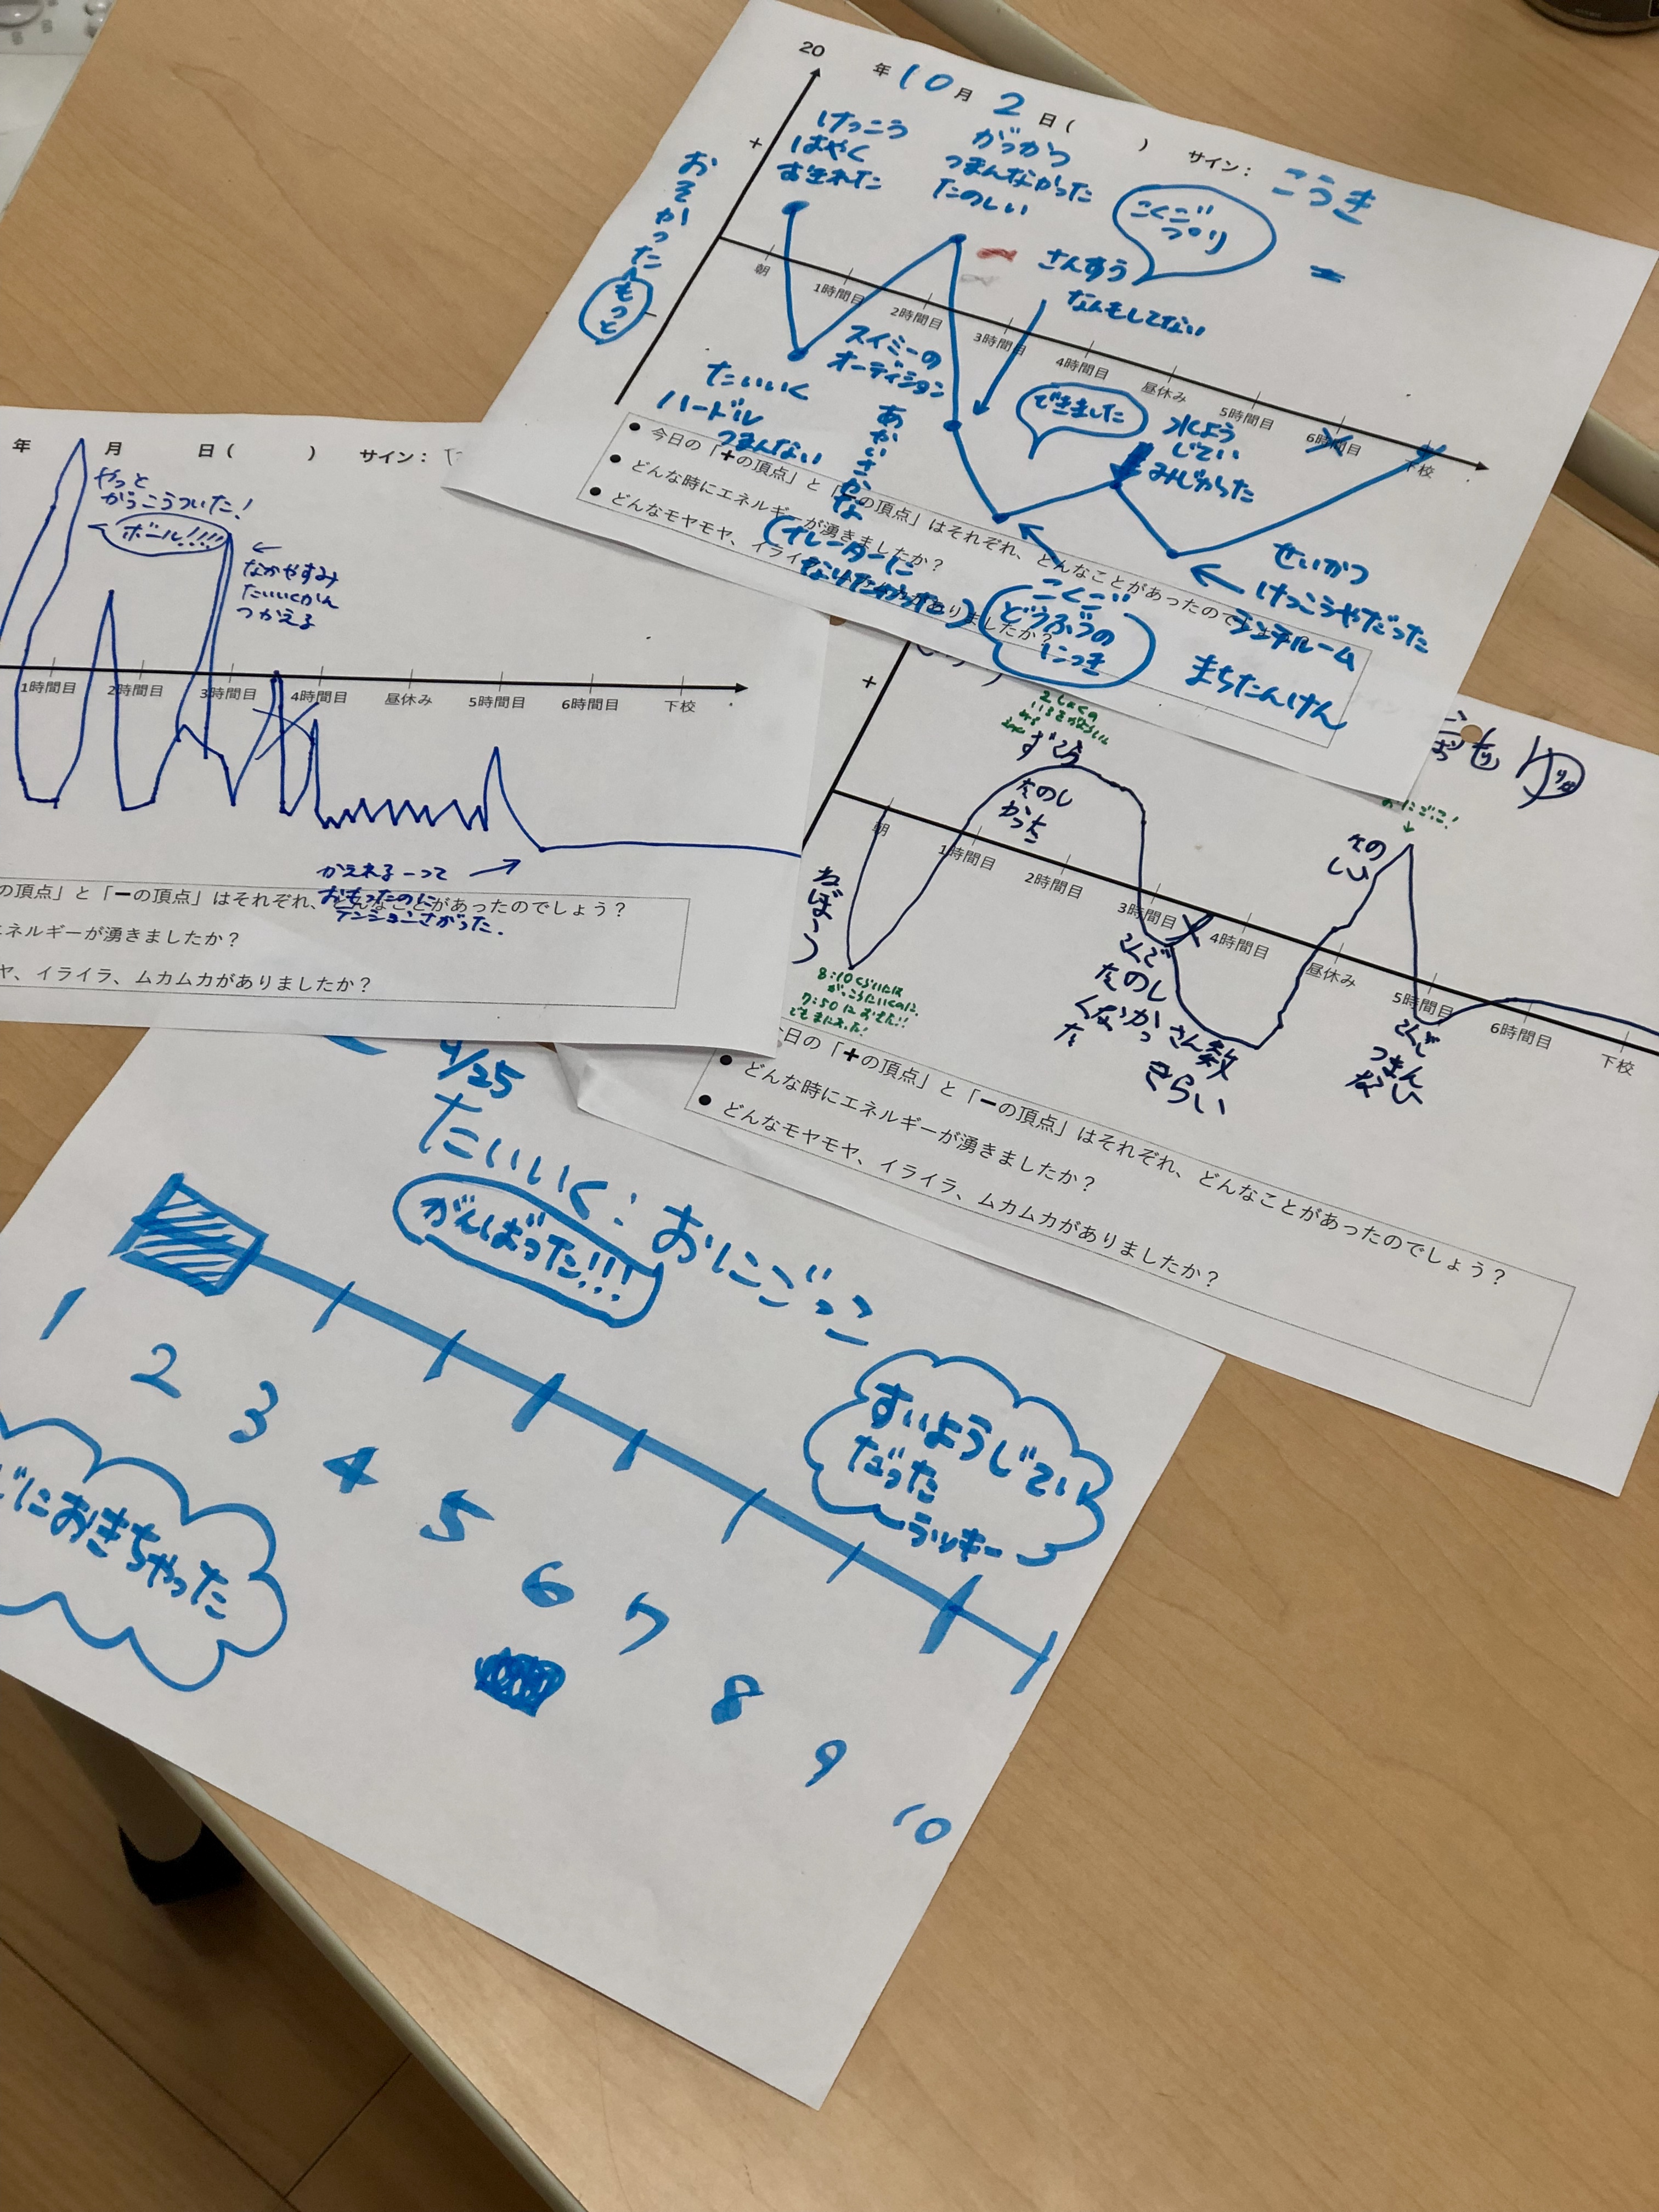 20 年 10 月 2 日 ( ) サイン： こうき
+
けっこう
はやく
おそかった
もっと
がっかつ
つまんなかった
たのしい
こくご
さんすう
なんもしてない
朝
1時間目
2時間目
3時間目
4時間目
昼休み
5時間目
6時間目
下校
たいいく
ハードル
つまんない
スイミーの
オーディション
あかいさかな
できました
水よう
じてい
みじかった
こくご
どうぶつの
にっき
せいかつ
けっこうやだった
まちたんけん
● 今日の「+の頂点」と「ーの頂点」はそれぞれ、どんなことがあったので
● どんな時にエネルギーが湧きましたか？
● どんなモヤモヤ、イライ
ありましたか？
年 月 日 ( ) サイン：
やっと
がっこうついた！
ボール!!!!
なかやすみ
たいいくかん
つかえる
1時間目
2時間目
3時間目
4時間目
昼休み
5時間目
6時間目
下校
かえれるーって
おもったのに
テンションさがった.
の頂点」と「ーの頂点」はそれぞれ、どんなことがあったのでしょう？
エネルギーが湧きましたか？
ヤ、イライラ、ムカムカがありましたか？
+
ずこう
たのし
かった
朝
1時間目
2時間目
3時間目
4時間目
昼休み
5時間目
6時間目
下校
ねぼう
8:10くらいには
7:50におきた!!
たのし
くなかっ
た
さん数
きらい
たの
しい
おにごこ！
つまん
ない
今日の「+の頂点」と「ーの頂点」はそれぞれ、どんなことがあったのでしょう？
● どんな時にエネルギーが湧きましたか？
● どんなモヤモヤ、イライラ、ムカムカがありましたか？
9/25
たいいく：おにごっこ
がんばった!!!
1
2
3
4
5
6
7
8
9
10
すいようじてい
だった
ラッキー
じにおきちゃった